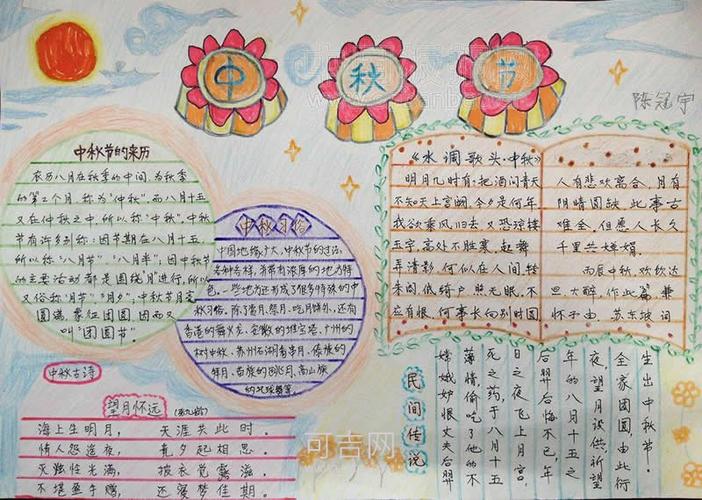 中秋节
陈冠宇
中秋节的来历
农历八月在秋季的中间,为秋季
的第二个月,称为"仲秋",而八月十五
又在仲秋之中,所以称"中秋",中秋
节有许多别称:因节期在八月十五,
所以称"八月节","八月半";因中秋节
的主要活动都是围绕"月"进行,所以
又俗称"月节""月夕",中秋节月亮
圆满,象征团圆,因而又
叫"团圆节"。
中秋习俗
中国地缘广大,中秋节的习俗
各种各样,并带有浓厚的地方特
色。一些地方还形成了很多特殊的中
秋习俗,除了赏月、祭月、吃月饼外,还有
香港的舞火龙、安徽的堆宝塔、广州的
树中秋、苏州石湖看串月、傣族的
拜月、苗族的跳月、高山族
的托球舞等。
《水调歌头·中秋》
明月几时有,把酒问青天
不知天上宫阙,今夕是何年
我欲乘风归去,又恐琼楼
玉宇,高处不胜寒,起舞
弄清影,何似在人间,转
朱阁,低绮户,照无眠,不
应有恨,何事长向别时圆
人有悲欢离合,月有
阴晴圆缺,此事古
难全,但愿人长久
千里共婵娟。
丙辰中秋,欢饮达
旦,大醉,作此篇,兼
怀子由,苏东坡词
中秋古诗
望月怀远
海上生明月,天涯共此时。
情人怨遥夜,竟夕起相思。
灭烛怜光满,披衣觉露滋。
不堪盈手赠,还寝梦佳期
民间传说
嫦娥妒恨丈夫后羿
薄情,偷吃了他的不
死之药,于八月十五
日之夜飞上月宫,
后羿后悔不已,年
年的八月十五之
夜,望月谈供,祈望
全家团圆,由此衍
生出中秋节。
可吉网